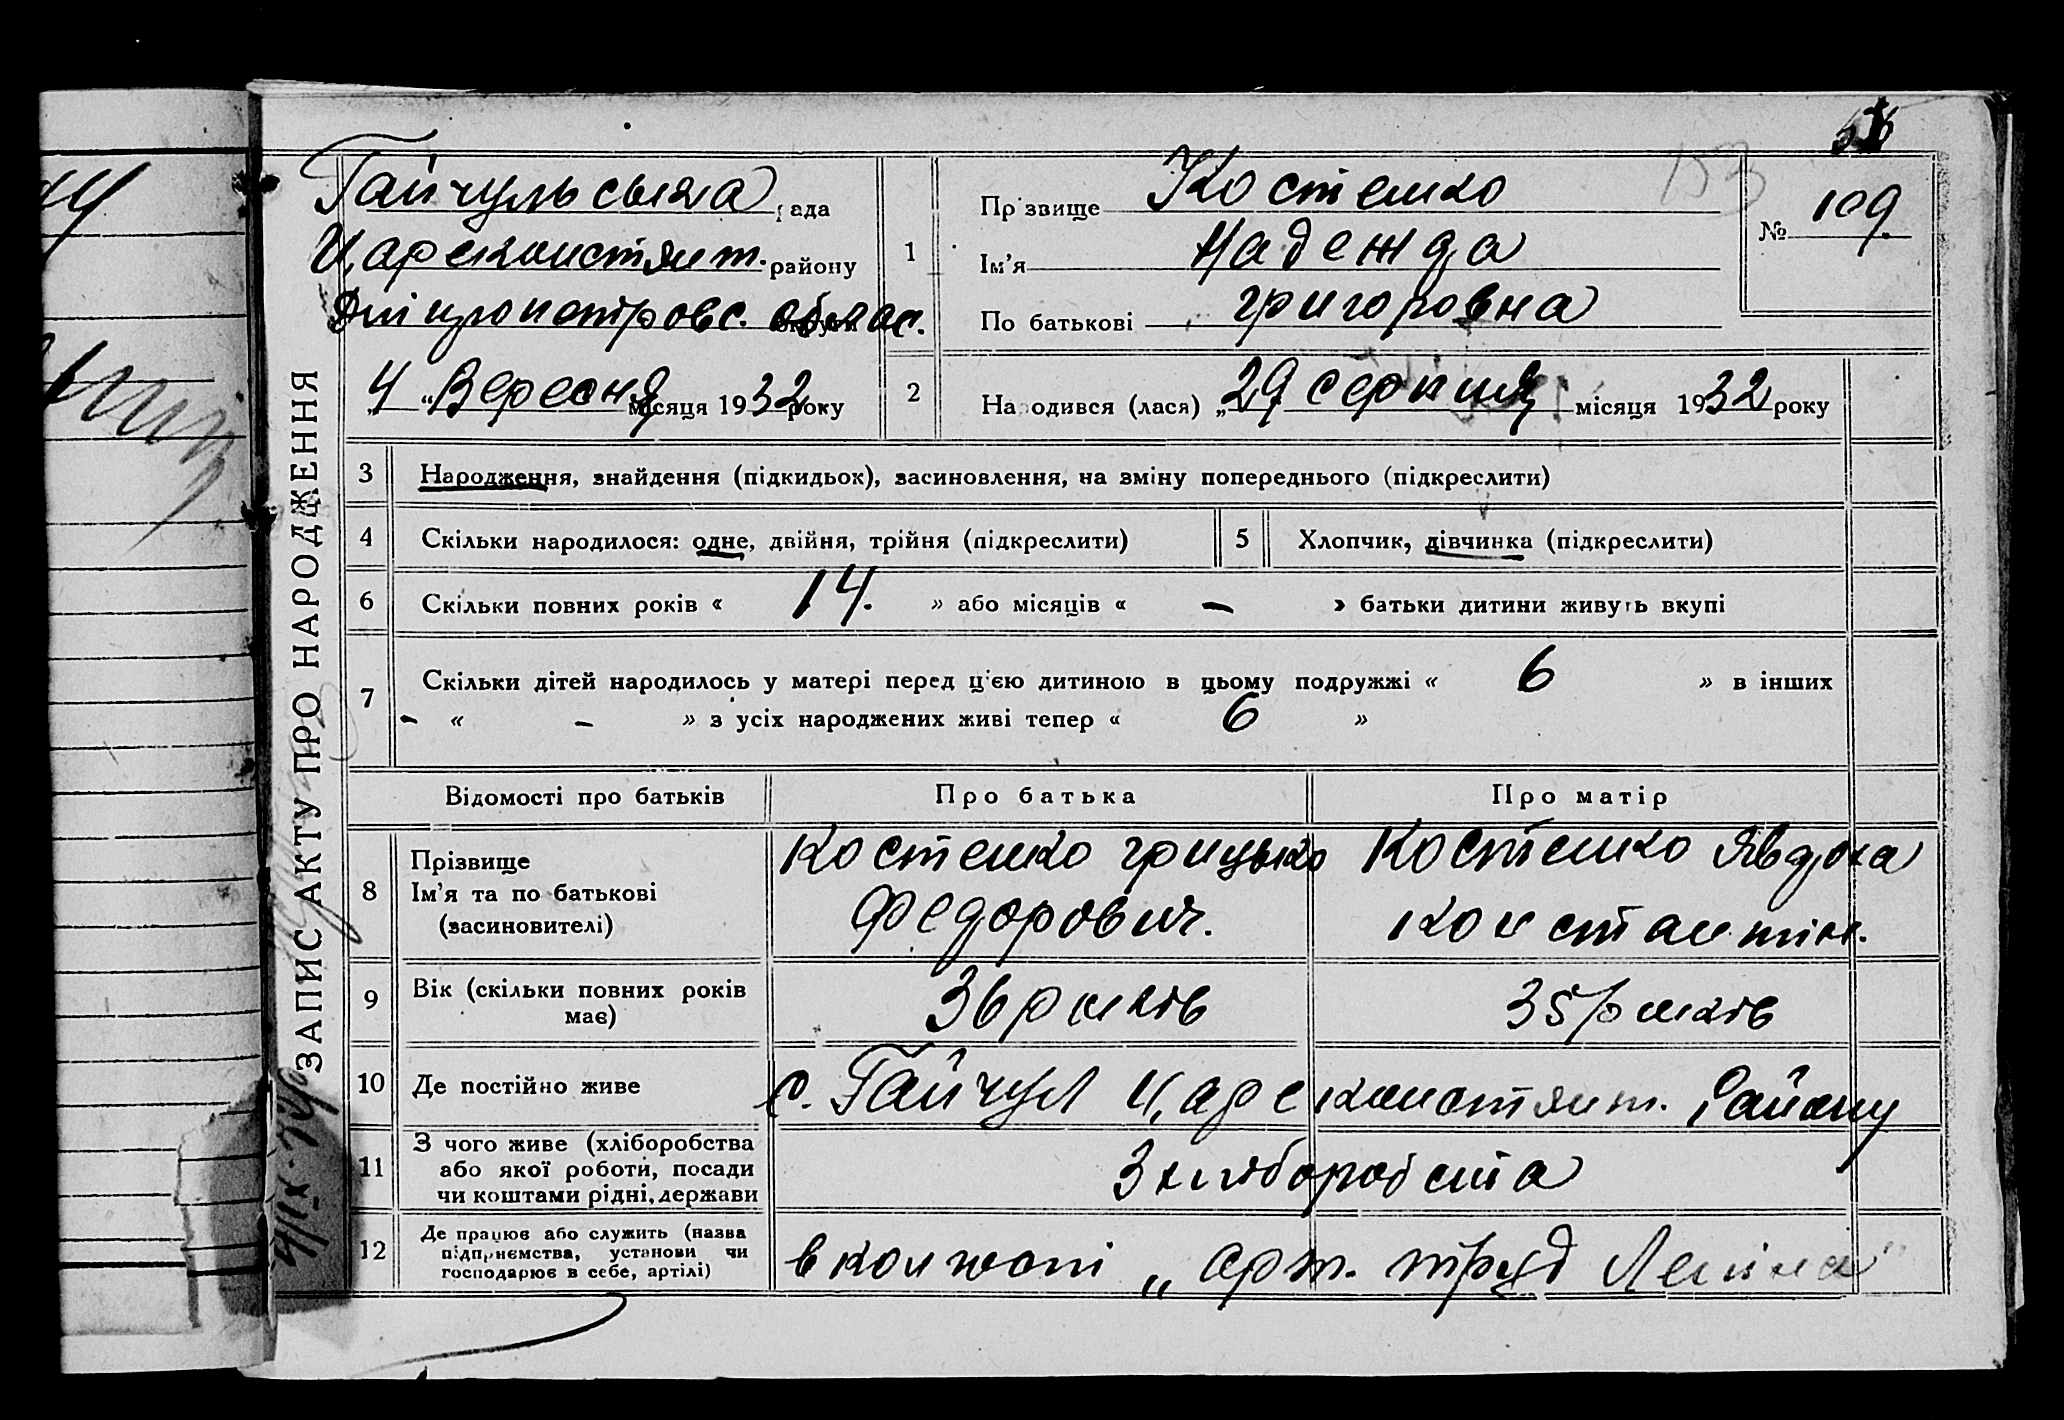 153
Гайчульська рада
Цареконстянт. району
Дніпропетровс. облас.
4 „Вересня місяця 1932 року
1
Прізвище Костенко
Ім’я Надежда
По батькові григоровна
№ 109
2
Народився (лася) „29 серпня місяця 1932 року
ЗАПИС АКТУ ПРО НАРОДЖЕННЯ
3 Народження, знайдення (підкидьок), засиновлення, на зміну попереднього (підкреслити)
4 Скільки народилося: одне, двійня, трійня (підкреслити) 5 Хлопчик, дівчинка (підкреслити)
6 Скільки повних років « 14. » або місяців « – » батьки дитини живуть вкупі
7 Скільки дітей народилось у матері перед ц’єю дитиною в цьому подружжі « 6 » в інших
– « – » з усіх народжених живі тепер « 6 »
Відомості про батьків Про батька Про матір
8 Прізвище
Ім’я та по батькові
(засиновителі)
Костенко грицько
Федорович.
Костенко Явдоха
Константін.
9 Вік (скільки повних років
має)
36 років 35 років
10 Де постійно живе с. Гайчул Цареконстянт. Району
11 З чого живе (хліборобства
або якої роботи, посади
чи коштами рідні, держави
З хліборобства
12 Де працює або служить (назва
підприємства, установи чи
господарює в себе, артілі)
в колхозі „арт. труд Леніна"